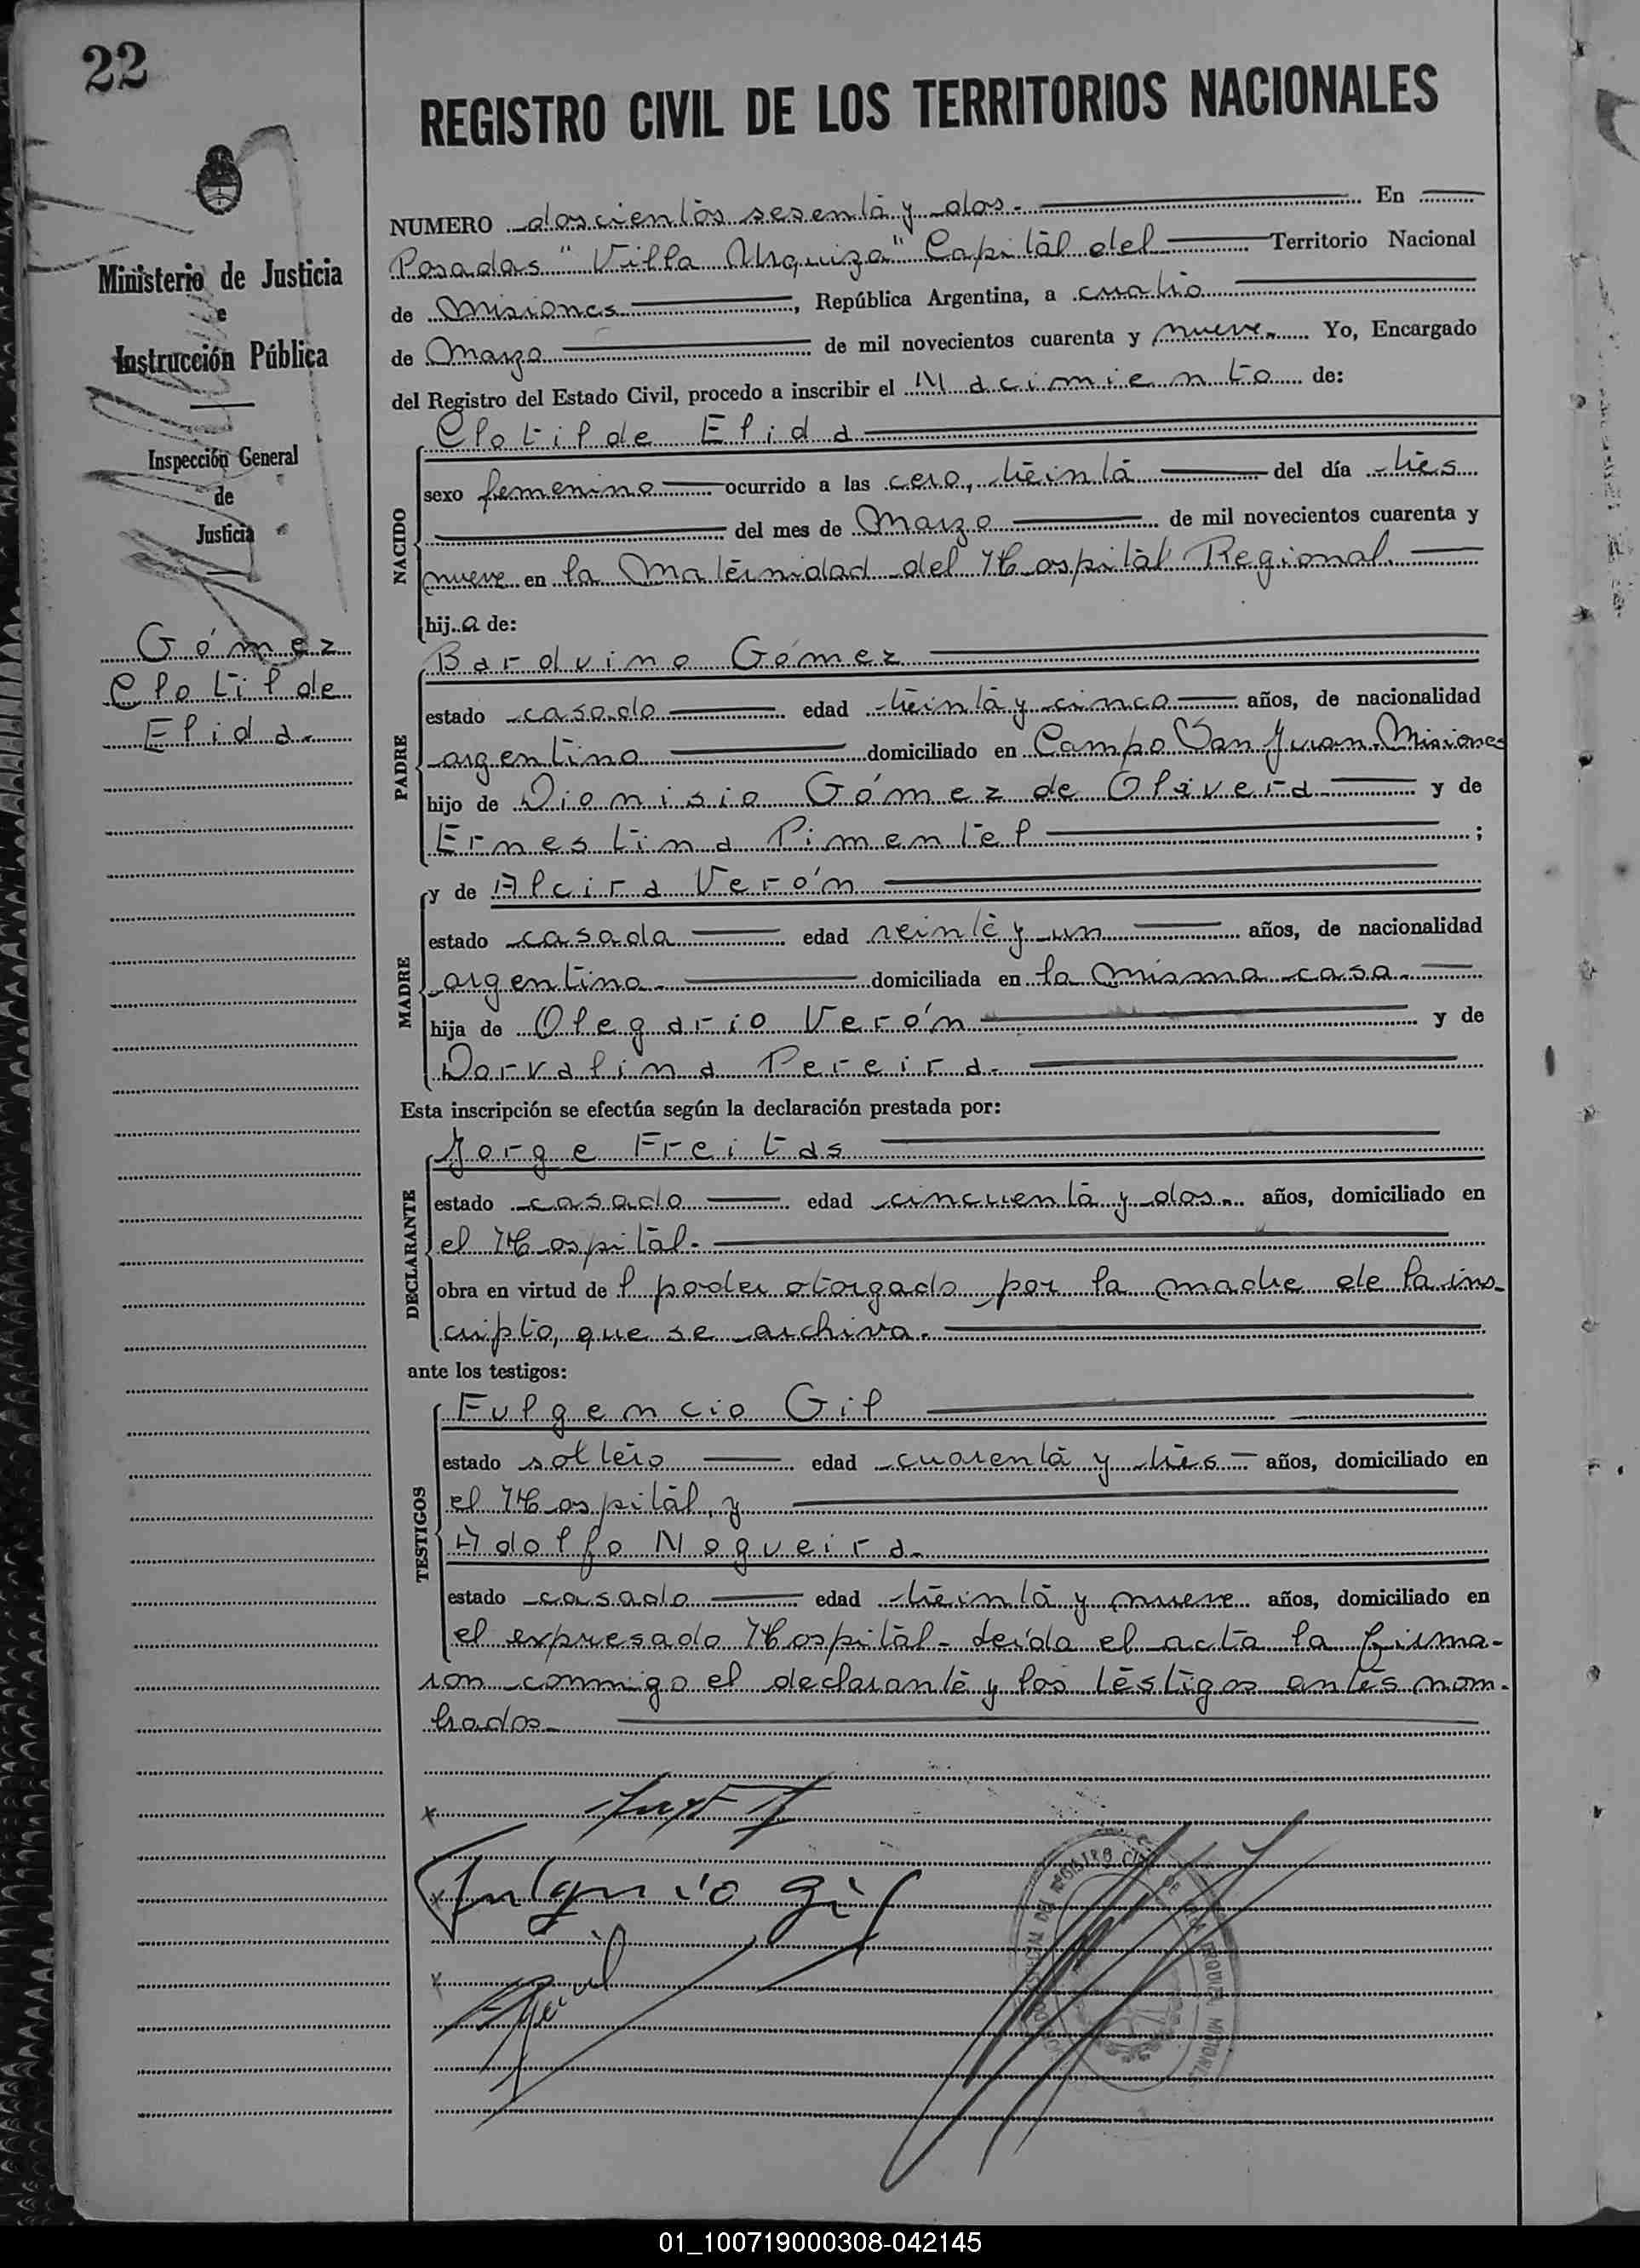 22
REGISTRO CIVIL DE LOS TERRITORIOS NACIONALES
Ministerio de Justicia
e
Instrucción Pública
Inspección General
de
Justicia
Gómez
Clotilde
Elida.
NUMERO doscientos sesenta y dos. En
Posadas "Villa Urquiza" Capital del Territorio Nacional
de Misiones, República Argentina, a cuatro
de Marzo de mil novecientos cuarenta y nueve. Yo, Encargado
del Registro del Estado Civil, procedo a inscribir el Nacimiento de:
NACIDO
Clotilde Elida
sexo femenino ocurrido a las cero, treinta del día tres
del mes de Marzo de mil novecientos cuarenta y
nueve en la Maternidad del Hospital Regional.
hij..a de:
PADRE
Barduino Gómez
estado casado edad treinta y cinco años, de nacionalidad
argentino domiciliado en Campo San Juan Misiones
hijo de Dionisio Gómez de Olivera y de
Ernestina Pimentel ;
MADRE
y de Alcira Verón
estado casada edad veinte y un años, de nacionalidad
argentina. domiciliada en la misma casa.
hija de Olegario Verón y de
Dorvalina Pereira.
Esta inscripción se efectúa según la declaración prestada por:
DECLARANTE
Jorge Freitas
estado casado edad cincuenta y dos.. años, domiciliado en
el Hospital.
obra en virtud de l poder otorgado por la madre de la ins-
cripto, que se archiva.
ante los testigos:
TESTIGOS
Fulgencio Gil
estado soltero edad cuarenta y tres años, domiciliado en
el Hospital, y
Adolfo Nogueira.
estado casado edad treinta y nueve años, domiciliado en
el expresado Hospital- Leída el acta la firma-
ron conmigo el declarante y los testigos antes nom-
brados.
x
x Fulgencio Gil
x
01_100719000308-042145